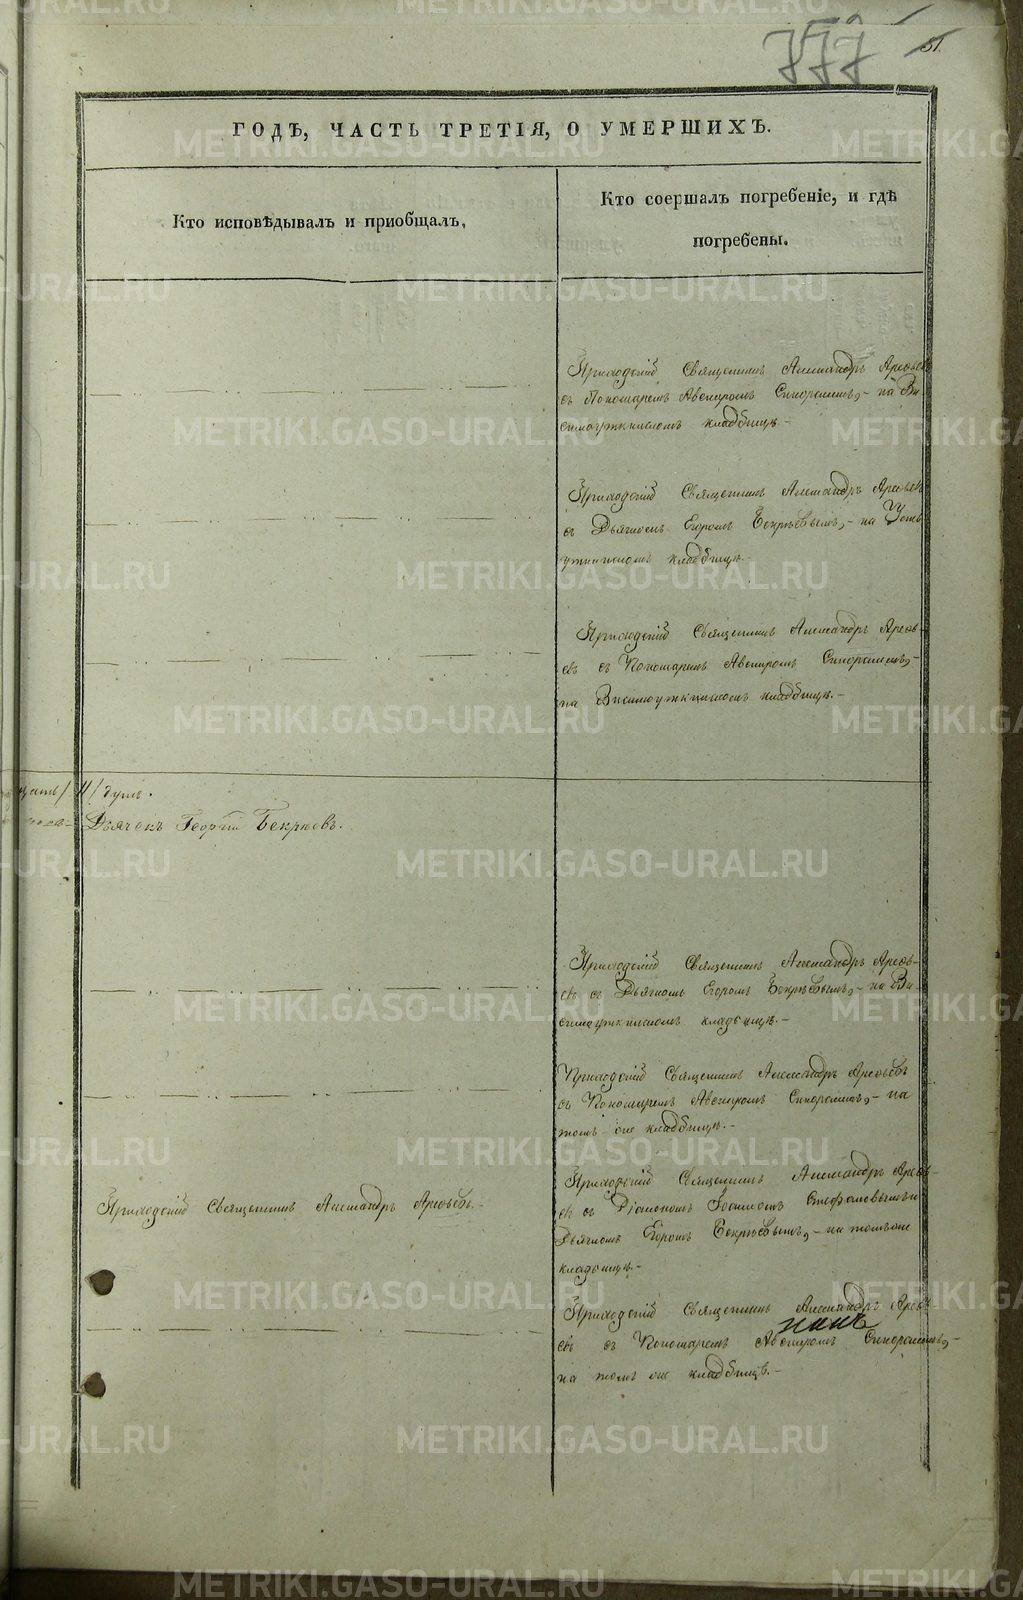 777
51.
ГОДѢ, ЧАСТЬ ТРЕТІЯ, О УМЕРШИХЪ.
Кто исповѣдывалъ и пріобщалъ,
Кто соершалъ погребеніе, и гдѣ
погребены.
Приходскій Священникъ Александръ Арефьев
съ Пономаремъ Авениромъ на Ви
симоуткинскомъ кладбищѣ.-
Приходскій Священникъ Александръ Арефьев
съ Дьячкомъ Егоромъ Бекрѣевымъ,- на Усть
уткинскомъ кладбищѣ.
Приходскій Священникъ Александръ Арефь-
евъ съ Пономаремъ Авениромъ
на Висимоуткинскомъ кладбищѣ.-
Дьячекъ Георгій Бекрѣевъ.
Приходскій Священникъ Александръ Арефь-
евъ съ Дьячкомъ Егоромъ Бекрѣевымъ,- на Ви
симоуткинскомъ кладбищѣ.-
Приходскій Священникъ Александръ Арефьевъ
съ Пономаремъ Авениромъ на
томъ же кладбищѣ.-
Приходскій Священникъ Александръ Арефьевъ.-
Приходскій Священникъ Александръ Арефь-
евъ съ Діакономъ Стефановымъ и
Дьячкомъ Егоромъ Бекрѣевымъ,- на томъ же
кладбищѣ.-
Приходскій Священникъ Александръ Арефь
евъ съ Пономаремъ Авениромъ
на томъ же кладбищѣ.-
METRIKI.GASO-URAL.RU